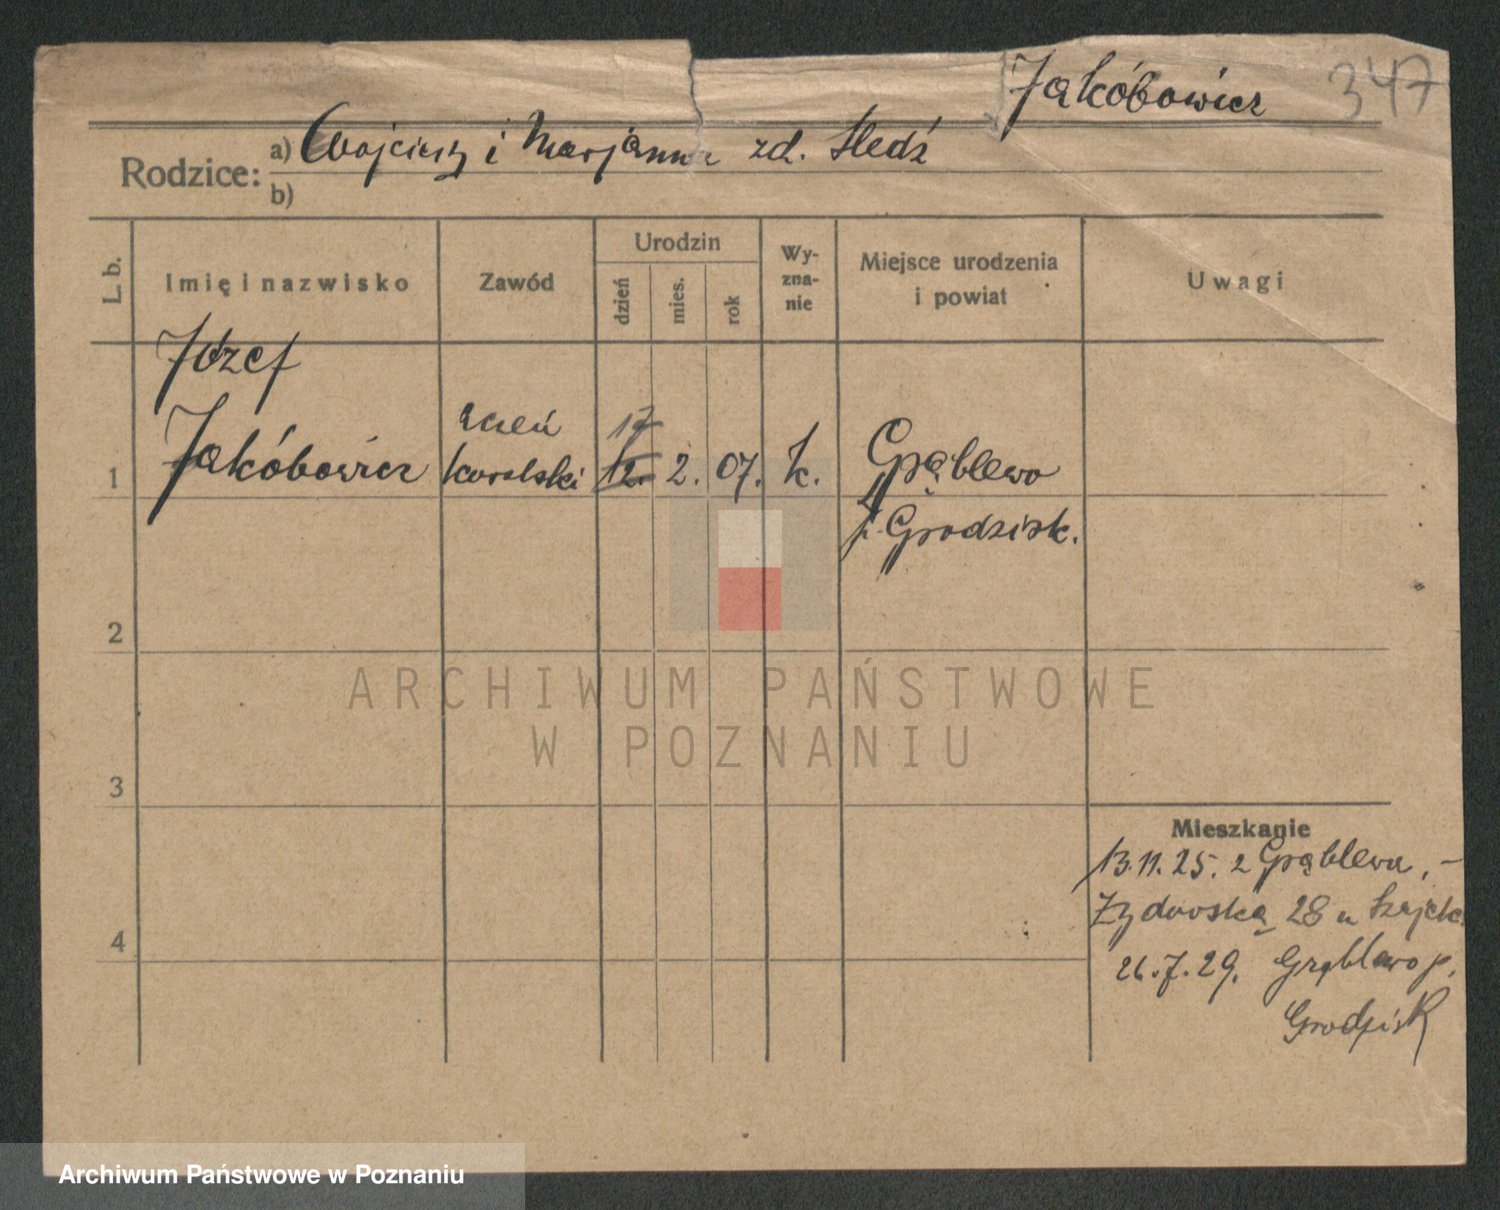 Jakóbowicz 347
Rodzice: a) Wojciech i Marjanna zd. Śledź
b)
L. b. Imię i nazwisko Zawód Urodzin dzień mies. rok Wy-zna-nie Miejsce urodzenia i powiat Uwagi
Józef
Jakóbowicz
uczeń
kowalski
17
12. 2. 07. k.
Grąblewo
p. Grodzisk.
1
2
3
4
Mieszkanie
13.11.25. z Grąblewa, -
Żydowska 28 u
26.7.29. Grąblewo p.
Grodzisk
ARCHIWUM PAŃSTWOWE
W POZNANIU
Archiwum Państwowe w Poznaniu